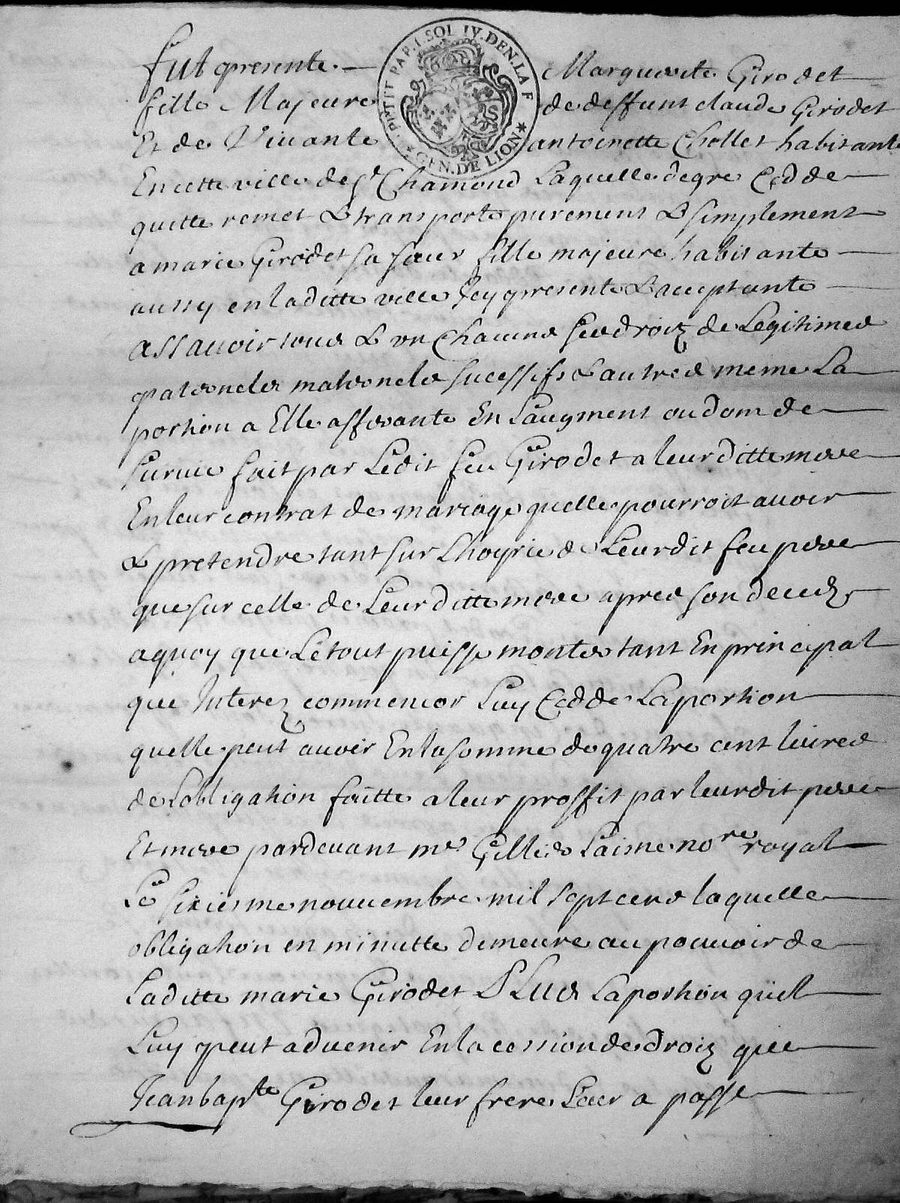 PETIT PAP. 1 SOL IV. DEN. LA F
GEN. DE LION
fut presente Marguerite Girodet
fille Majeure de deffunt claude Girodet
Et de Vivante antoinette Chollet habitante
En cette ville de St Chamond Laquelle de gre Cedde
quitte remet & transporte purement & simplement
a marie Girodet sa sœur fille majeure habitante
aussy en ladite ville Icy presente & acceptante
assavoir tous & un Chacuns ses droiz de Legitimes
paterneles materneles sucessifs & autres meme La
portion a Elle afferante En Laugment ou dom de
survie fait par Ledit feu Girodet a leurditte mere
En leur contrat de mariage quelle pourroit avoir
& pretendre tant sur Lhoyrie de Leurdit feu pere
que sur celle de Leurditte mere apres son decedz
a quoy que Le tout puisse monter tant En principal
que Interez comme encor Luy Cedde La portion
quelle peut avoir En la somme de quatre cent livres
de Lobligation faitte a leur proffit par leurdit pere
Et mere pardevant me Gillies Laisme nore royal
Le sixiesme novembre mil sept cens laquelle
obligation en minutte demeure au pouvoir de
Laditte marie Girodet Plus La portion quil
Luy peut advenir En la cession de droiz que
Jean bapte Girodet leur frere Leur a passe